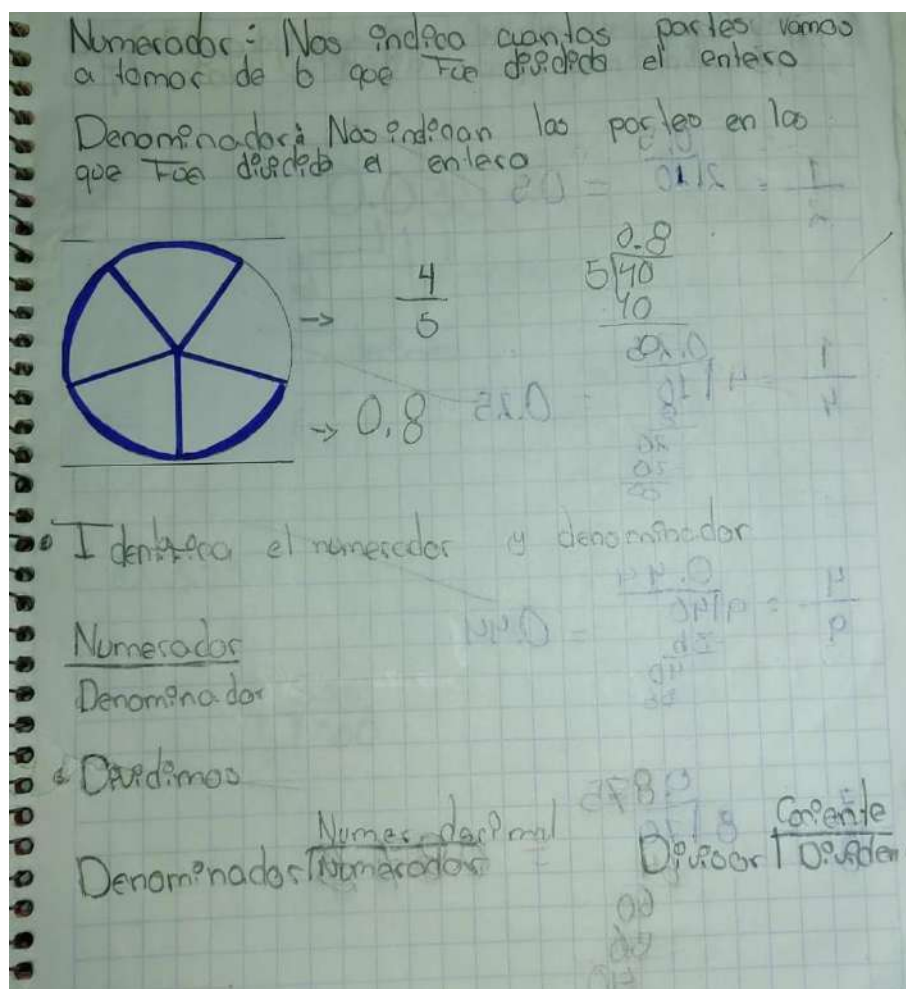 Numerador: Nos indica cuantas partes vamos
a tomar de lo que Fue dividido el entero
Denominador: Nos indican las partes en las
que Fue dividido el entero
0.8
4 5 40
→ 5 40
→ 0.8
• Identifica el numerador y denominador
Numerador
Denominador
• Dividimos
Numer decimal Cociente
Denominador Numerador Divisor Dividen